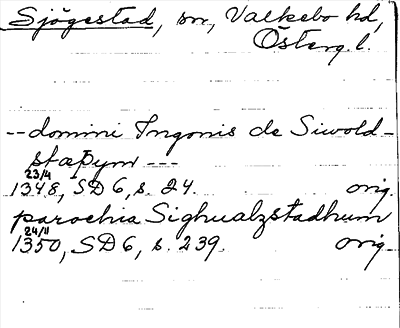 Sjögestad, sn, Valkebo hd,
Österg. l.
-- domini Ingonis de Siwold-
stæþum ---
23/4
1348, SD 6, s. 24. orig.
parochia Sighualzstadhum
24/11
1350, SD 6, s. 239. orig.